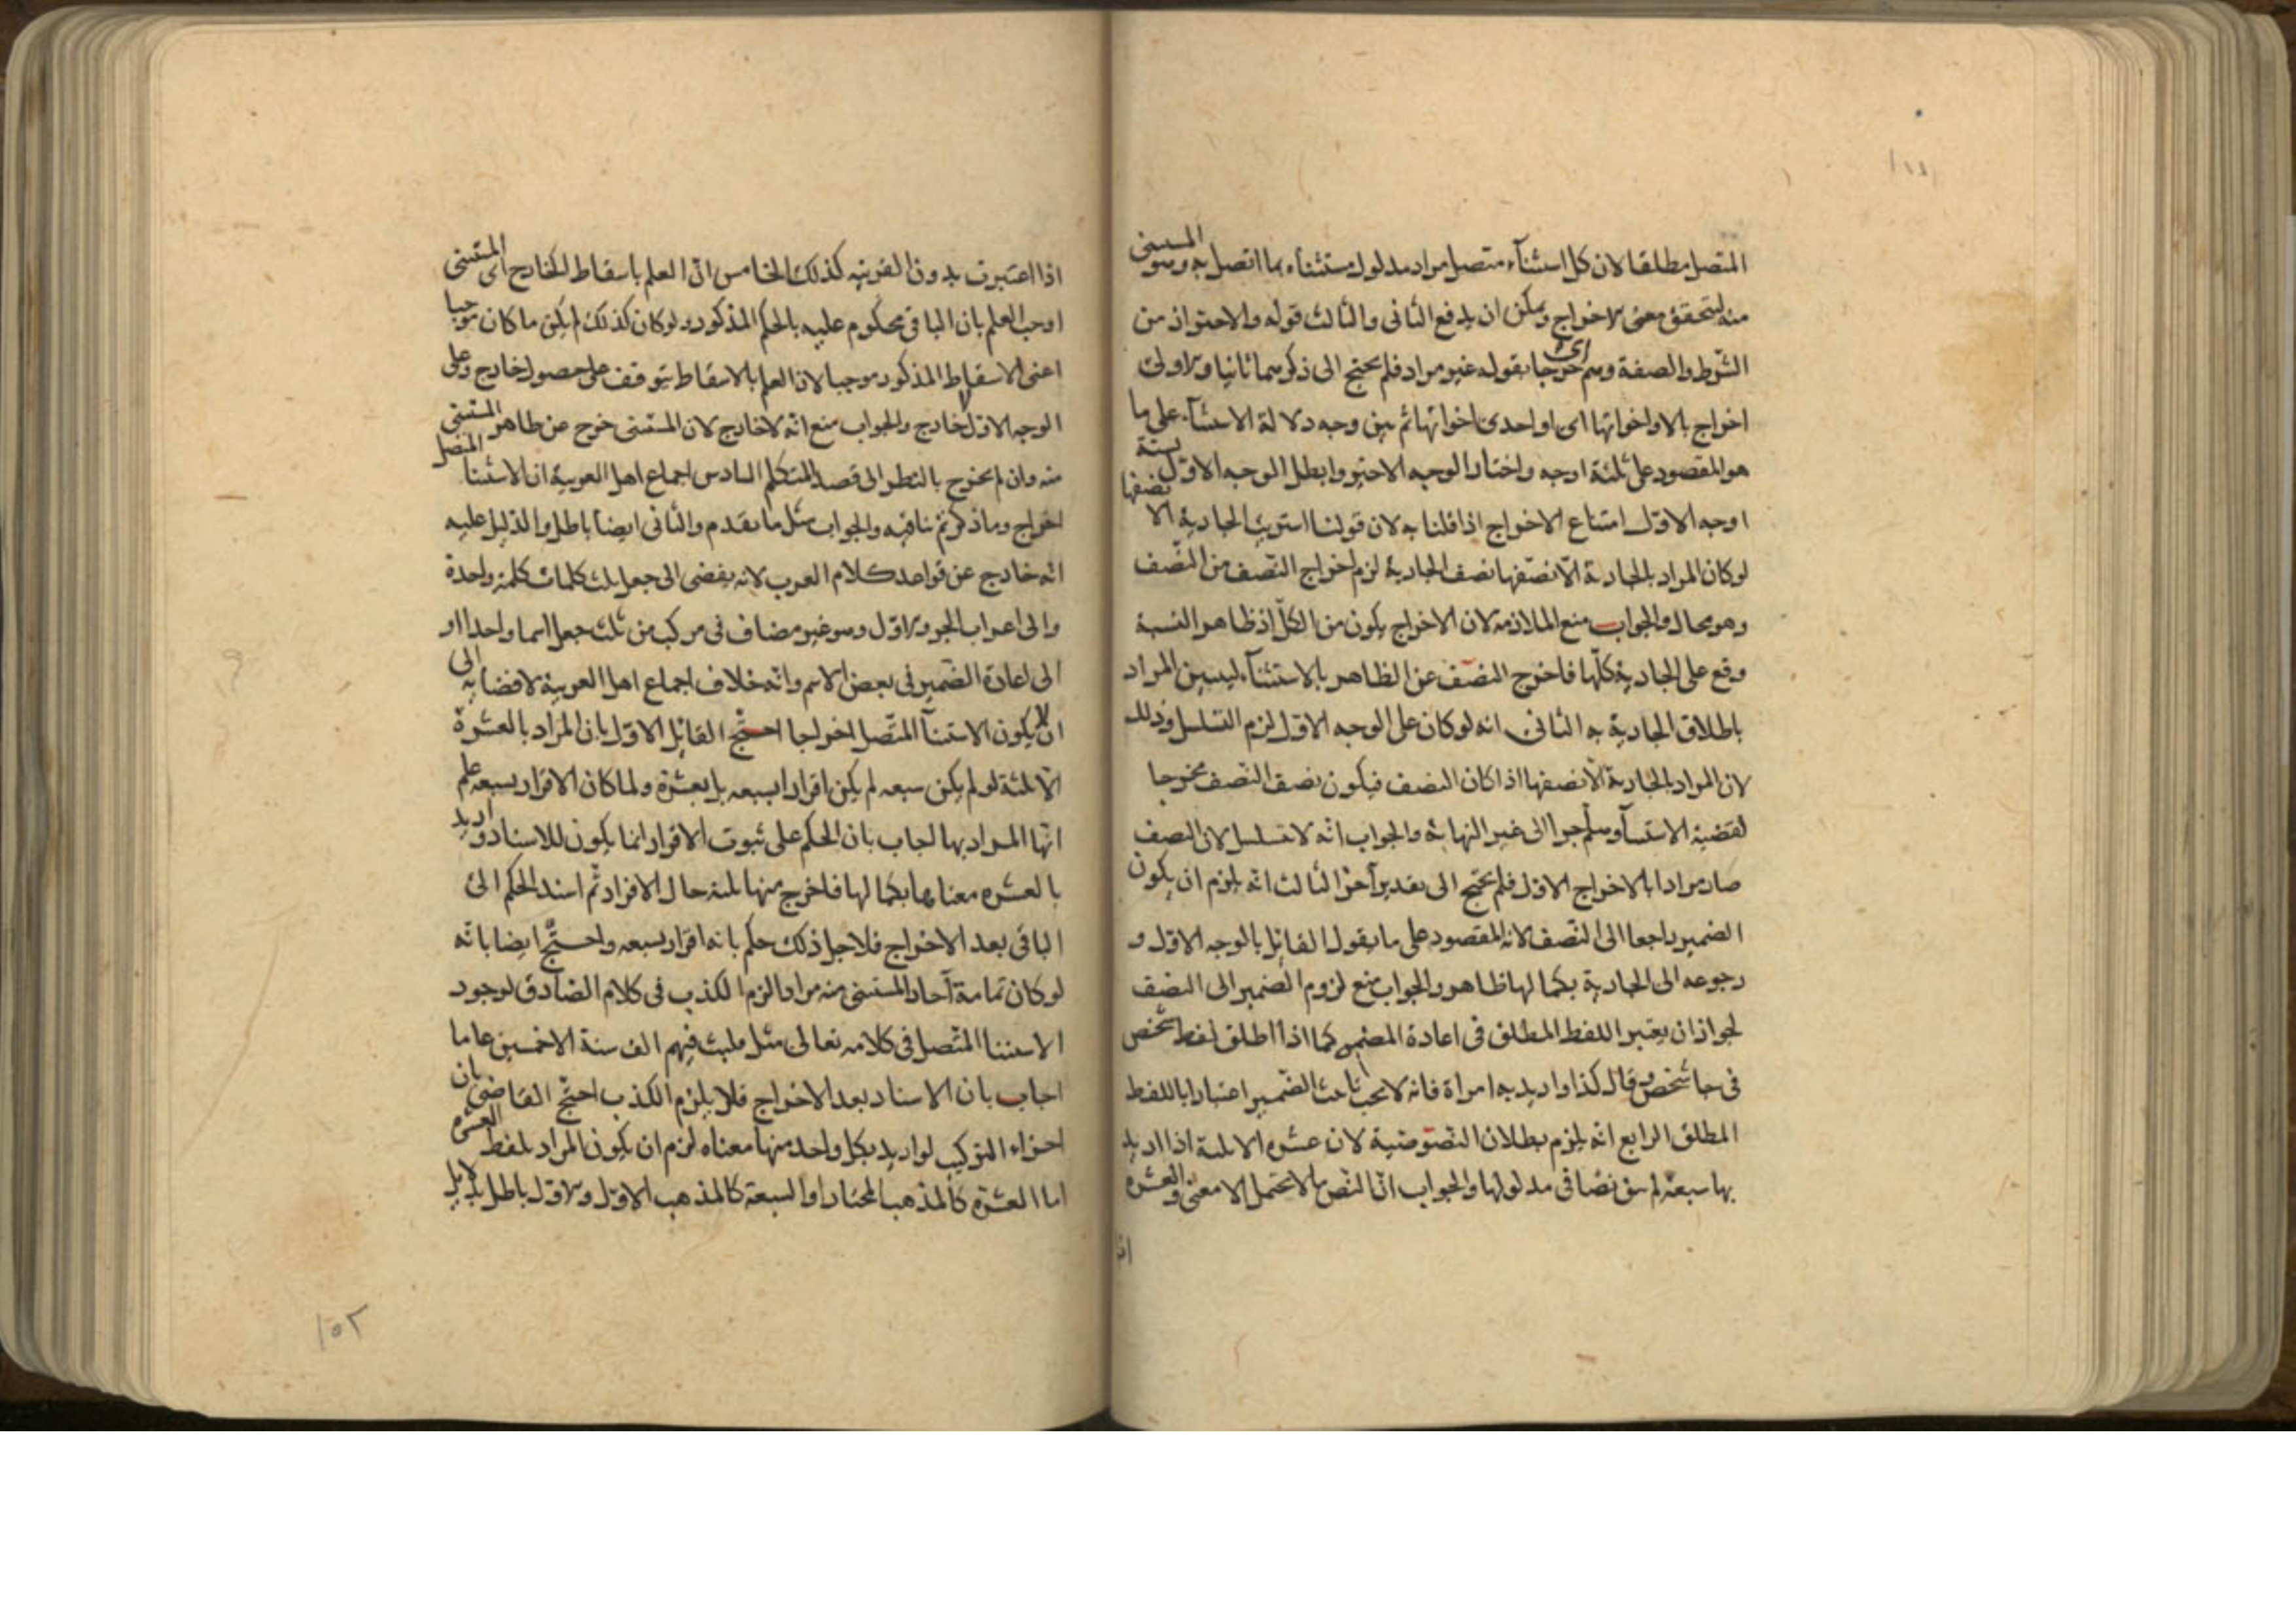 المتصل مطلقا لان كل استثناء متصل مراد مدلول مستثناه بما اتصل به وهو المستثنى
منه ليتحقق معنى الاخراج ويمكن ان يدفع الثانى والثالث قوله والاحتراز من
الشرط والصفة وهم اى خرجا بقوله غير مراد فلم يحتج الى ذكرهما ثانيا والاولى
اخراج بالا واخواتها اى او احدى اخواتها ثم بين وجه دلالة الاستثناء على ما
هو المقصود على ثلثة اوجه واختار الوجه الاخير وابطل الوجه الاول بستة
اوجه الاول امتناع الاخراج اذا قلنا به لان قولنا اشتريت الجارية الا نصفها
لو كان المراد بالجارية الا نصفها نصف الجارية لزم اخراج النصف من النصف
وهو محال والجواب منع الملازمه لان الاخراج يكون من الكل اذ ظاهر النسبة
وقع على الجارية كلها فاخرج النصف عن الظاهر بالاستثناء ليبين المراد
باطلاق الجارية به الثانى انه لو كان على الوجه الاول لزم التسلسل وذلك
لان المراد بالجارية الا نصفها اذا كان النصف فيكون نصف النصف مخرجا
لقضية الاستثنا وهلم جرا الى غير النهاية والجواب انه لا تسلسل لان النصف
صار مرادا بالاخراج الاول فلم يحتج الى تقدير آخر الثالث انه يلزم ان يكون
الضمير راجعا الى النصف لانه المقصود على ما يقول القائل بالوجه الاول و
رجوعه الى الجارية بكمالها ظاهر والجواب منع لزوم الضمير الى النصف
لجواز ان يعتبر اللفظ المطلق فى اعادة المضمر كما اذا اطلق لفظ شخص
فى جا شخص وقال كذا واريد به امراة فانه لا يجب تانيث الضمير اعتبارا باللفظ
المطلق الرابع انه يلزم بطلان النصوصية لان عشره الا ثلثة اذا اريد
بها سبعة لم يبق نصا فى مدلولها والجواب ان النص ما لا يحتمل الا معنى والعشره
اذا
اذا اعتبرت بدون القرينه كذلك الخامس ان العلم باسقاط الخارج اى المستثنى
اوجب العلم بان الباقى محكوم عليه بالحكم المذكور ولو كان كذلك لم يكن ما كان موجبا
اعنى الاسقاط المذكور موجبا لان العلم بالاسقاط يتوقف على حصول خارج وعلى
الوجه الاول لا خارج والجواب منع انه لا خارج لان المستثنى خرج عن ظاهر المستثنى
منه وان لم يخرج بالنظر الى قصد المتكلم السادس اجماع اهل العربية ان الاستثنا المتصل
اخراج وما ذكرتم ينافيه والجواب مثل ما تقدم والثانى ايضا باطل والدليل عليه
انه خارج عن قواعد كلام العرب لانه يفضى الى جعل ثلث كلمات كلمة واحدة
والى اعراب الجزو الاول وهو غير مضاف فى مركب من ثلث جعل اسما واحدا او
الى اعادة الضمير فى بعض الاسم وانه خلاف اجماع اهل العربية لافضائه الى
ان لا يكون الاستثنا المتصل اخراجا احتج القائل الاول بان المراد بالعشرة
الا ثلثة لو لم يكن سبعه لم يكن اقرارا بسبعه بل بعشرة ولما كان الاقرار بسبعه علم
انها المراد بها اجاب بان الحكم على ثبوت الاقرار انما يكون للاسناد واريد
بالعشره معناها بكمالها فاخرج منها ثلثة حال الافراد ثم اسند الحكم الى
الباقى بعد الاخراج فلاجل ذلك حكم بانه اقرار بسبعه واحتج ايضا بانه
لو كان تمامة آحاد المستثنى منه مرادا لزم الكذب فى كلام الصادق لوجود
الاستثنا المتصل فى كلامه تعالى مثل فلبث فيهم الف سنة الا خمسين عاما
اجاب بان الاسناد بعد الاخراج فلا يلزم الكذب احتج القاضى بان
اجزاء التركيب لو اريد بكل واحد منها معناه لزم ان يكون المراد بلفظ العشره
اما العشرة كالمذهب المختار او السبعة كالمذهب الاول والاول باطل
١٥٢